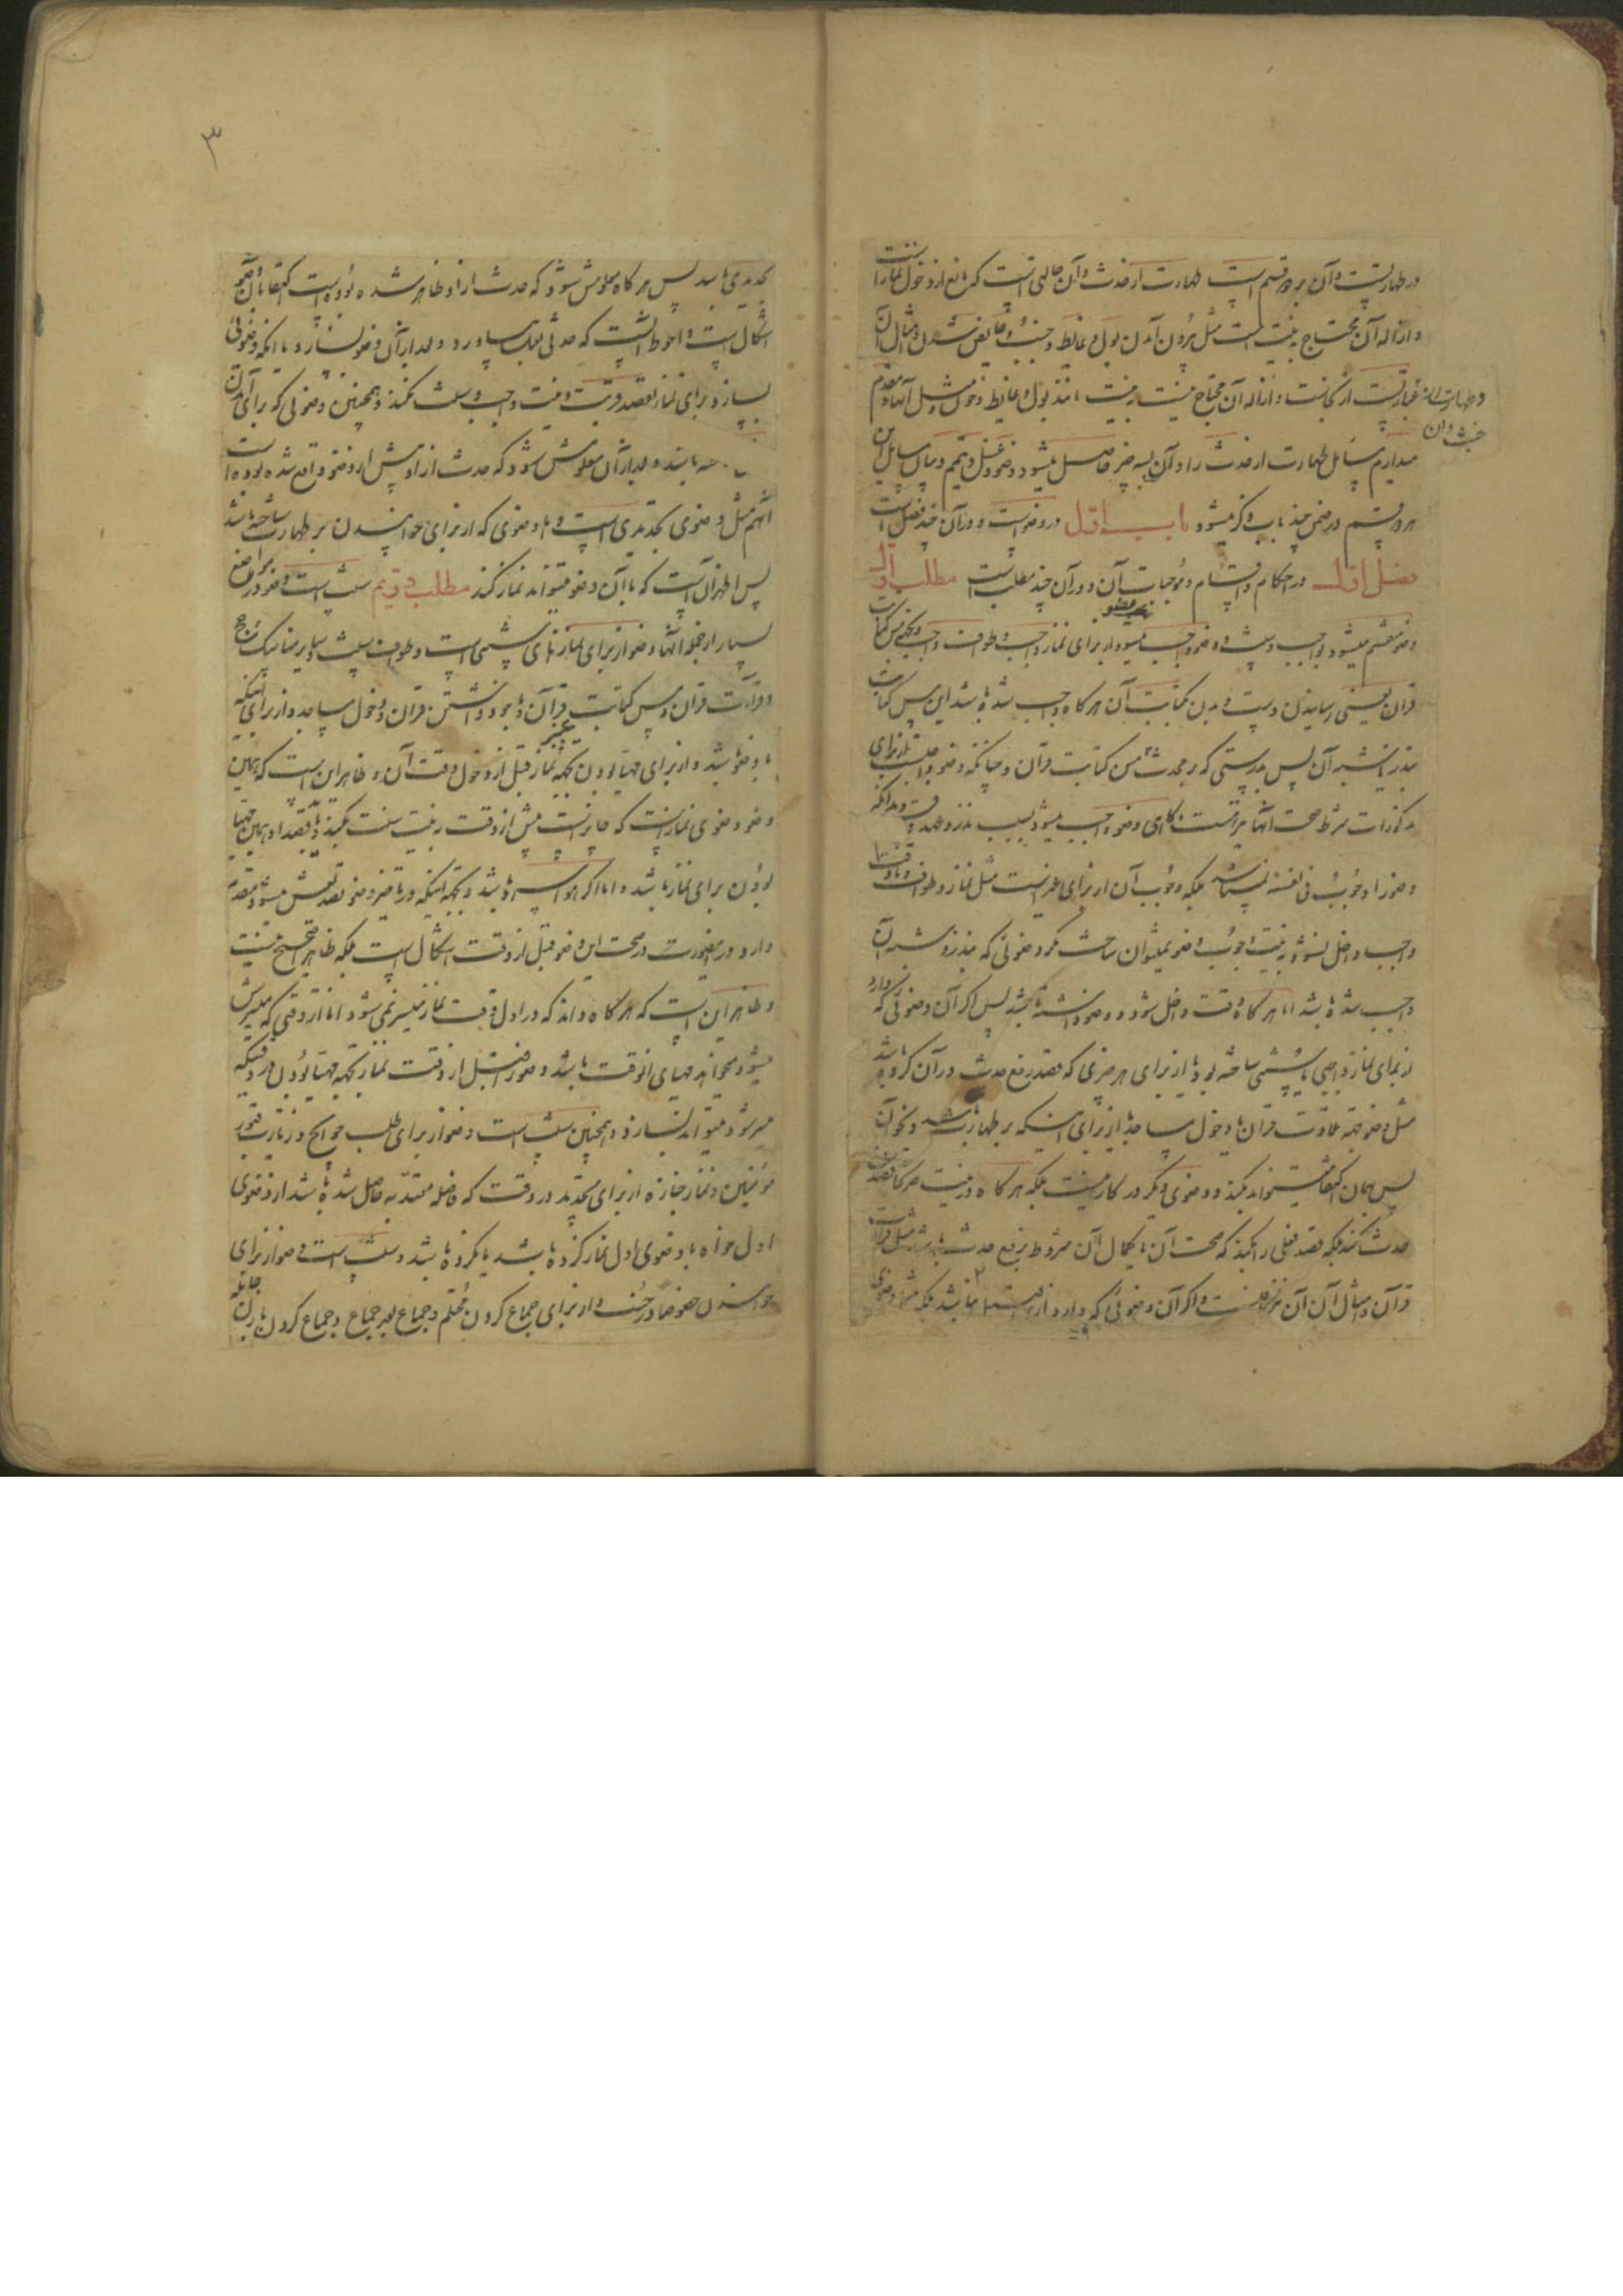 در طهارتست و آن بر دو قسم است طهارت از حدث و آن حالتی است که مانع از دخول نماز است
و ازاله آن محتاج به نیت است مثل بیرون آمدن بول و غایط و جنب و حایض شدن و امثال آن
و طهارت از خبث و آن
عبارتست از نجاست و ازاله آن محتاج نیست به نیت مانند بول و غایط و خون و مثل آنها و مقدم
میداریم مسایل طهارت از حدث را و آن بسه چیز حاصل میشود وضو و غسل و تیمم و بیان مسایل این
هر دو قسم در ضمن چند باب ذکر میشود باب اول در وضو است و در آن چند فصل است
فصل اول در احکام و اقسام و موجبات آن و در آن چند مطلب است مطلب اول
وضو منقسم میشود بواجب و سنت و وضو واجب میشود از برای نماز واجب و طواف واجب و بجهة مس کتابت
قران یعنی رسانیدن دست و بدن بکتابت آن هر گاه واجب شده باشد این مس کتابت
بنذر و شبه آن پس بدرستی که بر محدث مس کتابت قران و چنانکه وضو واجبست از برای
مذکورات شرط صحت آنها نیز هست و گاهی وضو واجب میشود بسبب نذر و عهد و قسم و بدانکه
وضو را وجوب فی نفسه نمیباشد بلکه وجوب آن از برای غیر است مثل نماز و طواف و تا وقت
واجب داخل نشود به نیت وجوب وضو نمیتوان ساخت مگر وضوئی که بنذر و شبه آن
واجب شده باشد اما هر گاه وقت داخل شود و وضو داشته باشد پس اگر آن وضوئی که دارد
از برای نماز واجبی یا سنتی ساخته بوده یا از برای هر چیزی که قصد رفع حدث در آن کرده باشد
مثل وضو بجهة تلاوت قران یا دخول مساجد یا از برای اینکه بر طهارت باشد و نحو آن
پس بهمان اکتفا میتواند بکند و وضوی دیگر در کار نیست بلکه هر گاه در نیت هر گاه قصد
حدث نکند بلکه قصد فعلی را بکند که صحت آن یا کمال آن مشروط برفع حدث باشد مثل قرائت
قرآن و امثال آن آن نیز و اگر آن وضوئی که دارد از نباشد بلکه مثل وضوی
۳
تجدیدی باشد پس هر گاه معلومش شود که حدث از او ظاهر شده بوده است اکتفا بآن وضو
اشکال است و احوط آنست که حدثی بعمل بیاورد و بعد از آن وضو بسازد یا آنکه وضوئی
بسازد برای نماز بقصد قربت و نیت واجب و سنت نکند و همچنین وضوئی که برای آن
باشد و بعد از آن معلومش شود که حدث از او پیش از وضو واقع شده بوده است
آنهم مثل وضوی تجدیدی است و اما وضوئی که از برای خوابیدن بر طهارت ساخته باشد
پس اظهر آنست که با آن وضو میتواند نماز کند مطلب دویم سنت است وضو در مواضع
بسیار از جمله آنها وضو از برای نمازهای سنتی است و طواف سنت و سایر مناسک حج
و قرائت قران و مس کتابت قرآن و با خود داشتن قران و دخول مساجد و از برای اینکه
با وضو باشد و از برای مهیا بودن بجهة نماز قبل از دخول وقت آن و ظاهر این است که همین
وضو وضوی نماز است که جایز است پیش از وقت به نیت سنت بکند و قصد او همین مهیا
بودن برای نماز باشد و اما اگر باشد و بجهة اینکه در تاخیر وضو نقصش میشود مقدم
دارد در اینصورت در صحت این وضو قبل از وقت اشکال است بلکه ظاهر صحیح نیست
و ظاهر آن است که هر گاه داند که در اول وقت نماز میسر نمی شود اما از وقتی که میسرش
میشود میخواهد مهیای آنوقت باشد وضو را قبل از وقت نماز بجهة مهیا بودن در وقتیکه
میسر شود میتواند بسازد و همچنین سنت است وضو از برای طلب حوایج و زیارت قبور
مؤمنین و نماز جنازه و از برای تجدید در وقت که فاصله معتد به حاصل شده باشد از وضوی
اول خواه با وضوی اول نماز کرده باشد یا نکرده باشد و سنت است وضو از برای
خوابیدن خصوصا در جنب و از برای جماع کردن محتلم و جماع بعد جماع و جماع کردن با زن حامله